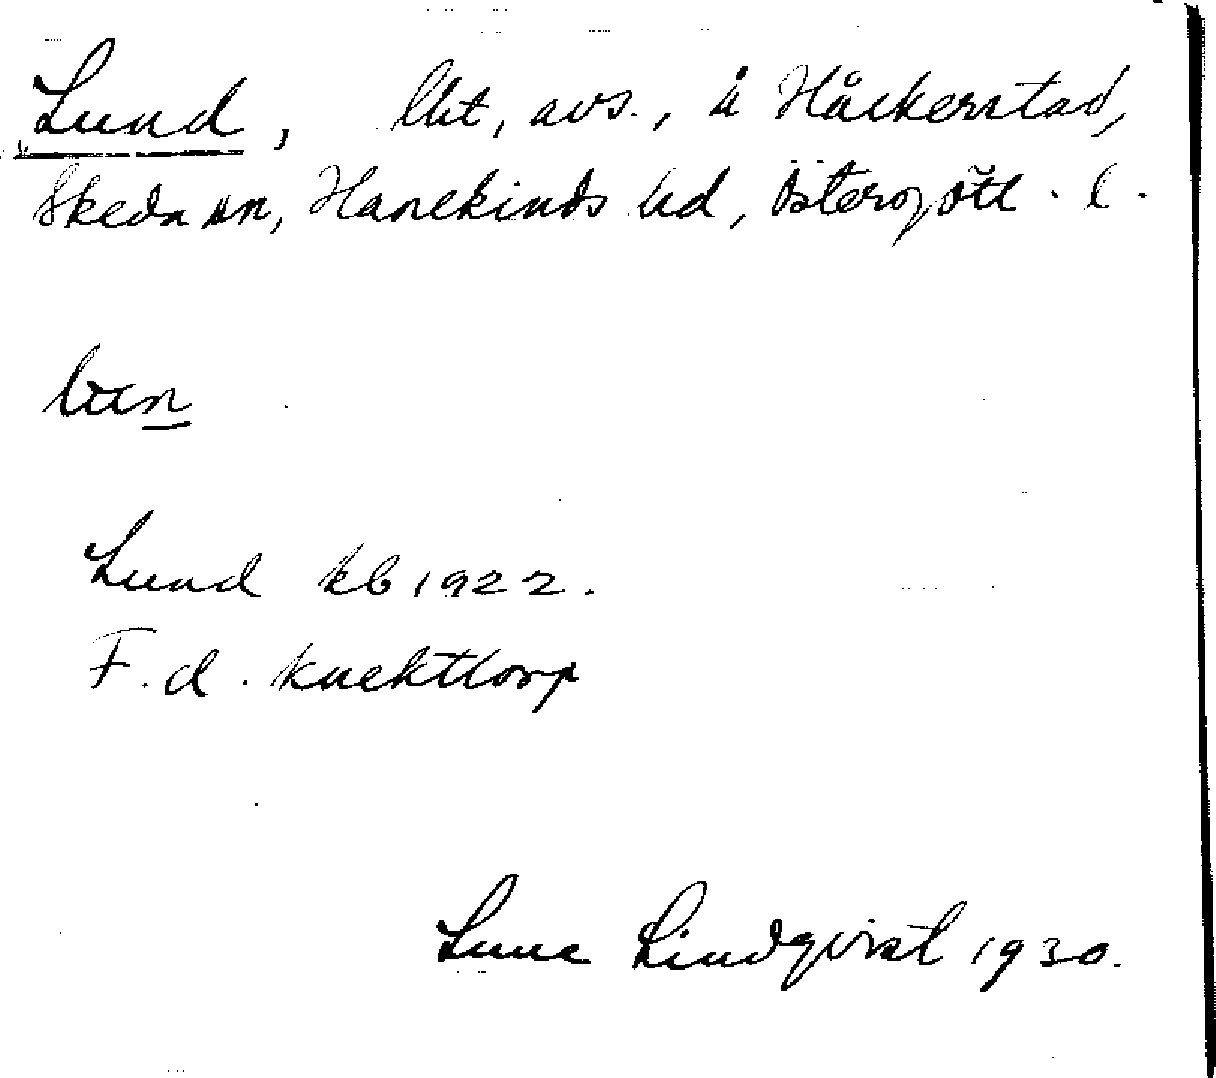 Lund, lht, avs., å Håckerstad,
Skeda sn, Hanekinds hd, Östergötl. l.
Lund kb 1922.
F.d. knekttorp
Sune Lindqvist 1930.